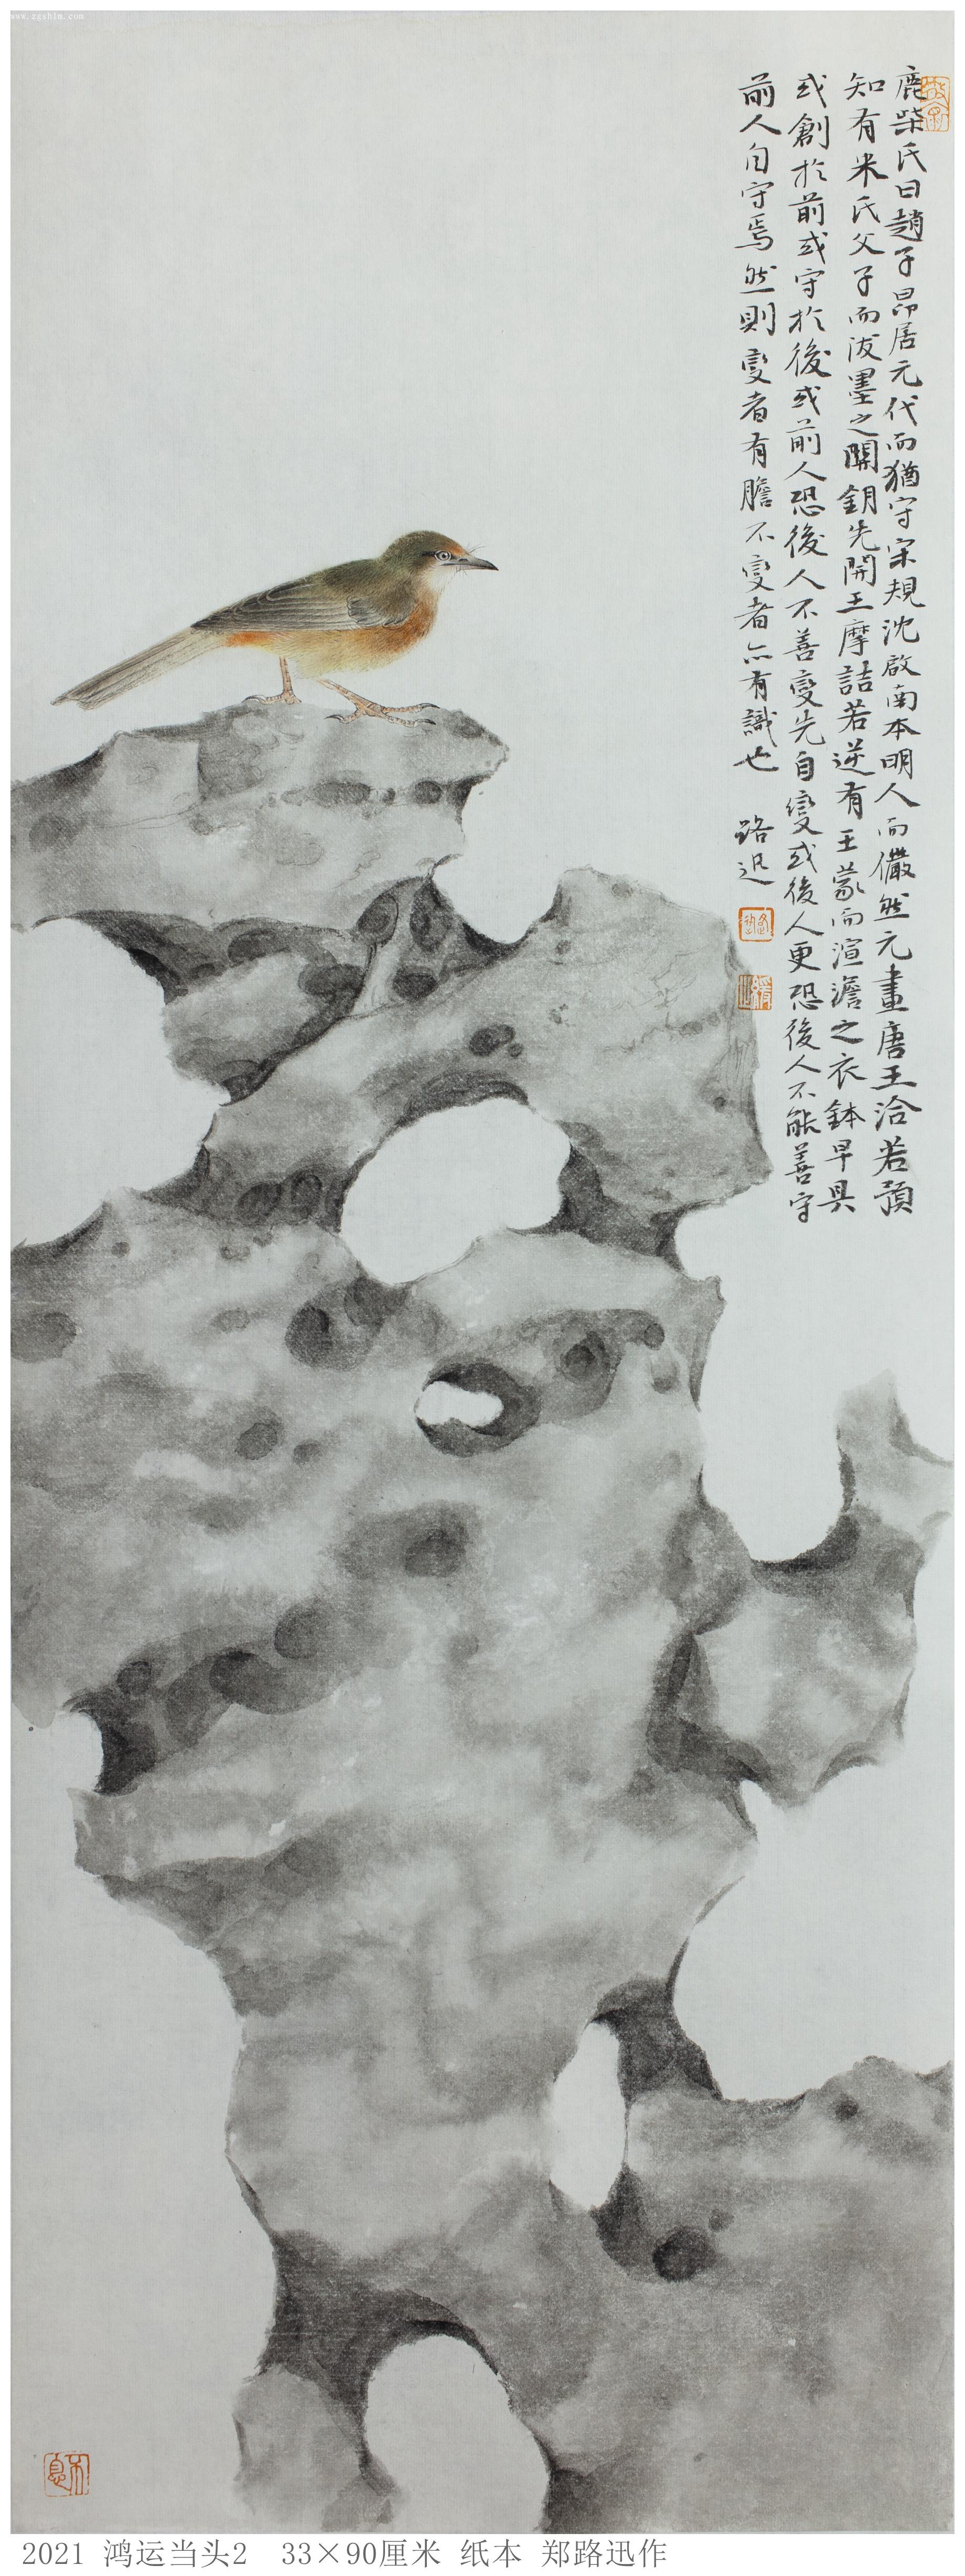 www.zgshlm.com
鹿柴氏曰趙子昂居元代而猶守宋規沈啟南本明人而儼然元畫唐王洽若預
知有米氏父子而潑墨之關鑰先開王摩詰若逆有王蒙而渲澹之衣鉢早具
或創於前或守於後或前人恐後人不善變先自變或後人更恐後人不能善守
前人自守焉然則變者有膽不變者亦有識也 路迅
不息
2021 鸿运当头2 33×90厘米 纸本 郑路迅作